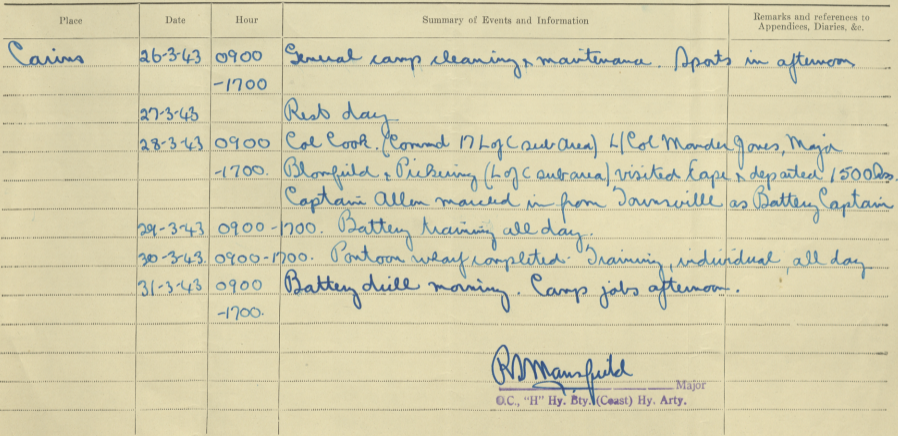 Place Date Hour Summary of Events and Information Remarks and references to Appendices, Diaries, &c.
Cairns 26-3-43 0900 General camp cleaning & maintenance. Sports in afternoon
-1700
27-3-43 Rest day
28-3-43 0900 Col Cook. (Commd 17 L of C sub area) L/Col Mander Jones, Major
-1700. Blomfield & Pickering (L of C sub area) visited Cape & departed 1500
Captain Allen marched in from Townsville as Battery Captain
29-3-43 0900-1700. Battery training all day.
30-3-43 0900-1700. Pontoon wharf completed. Training, individual, all day
31-3-43 0900 Battery drill morning. Camp jobs afternoon.
-1700.
Mansfield
Major
O.C., "H" Hy. Bty. (Coast) Hy. Arty.